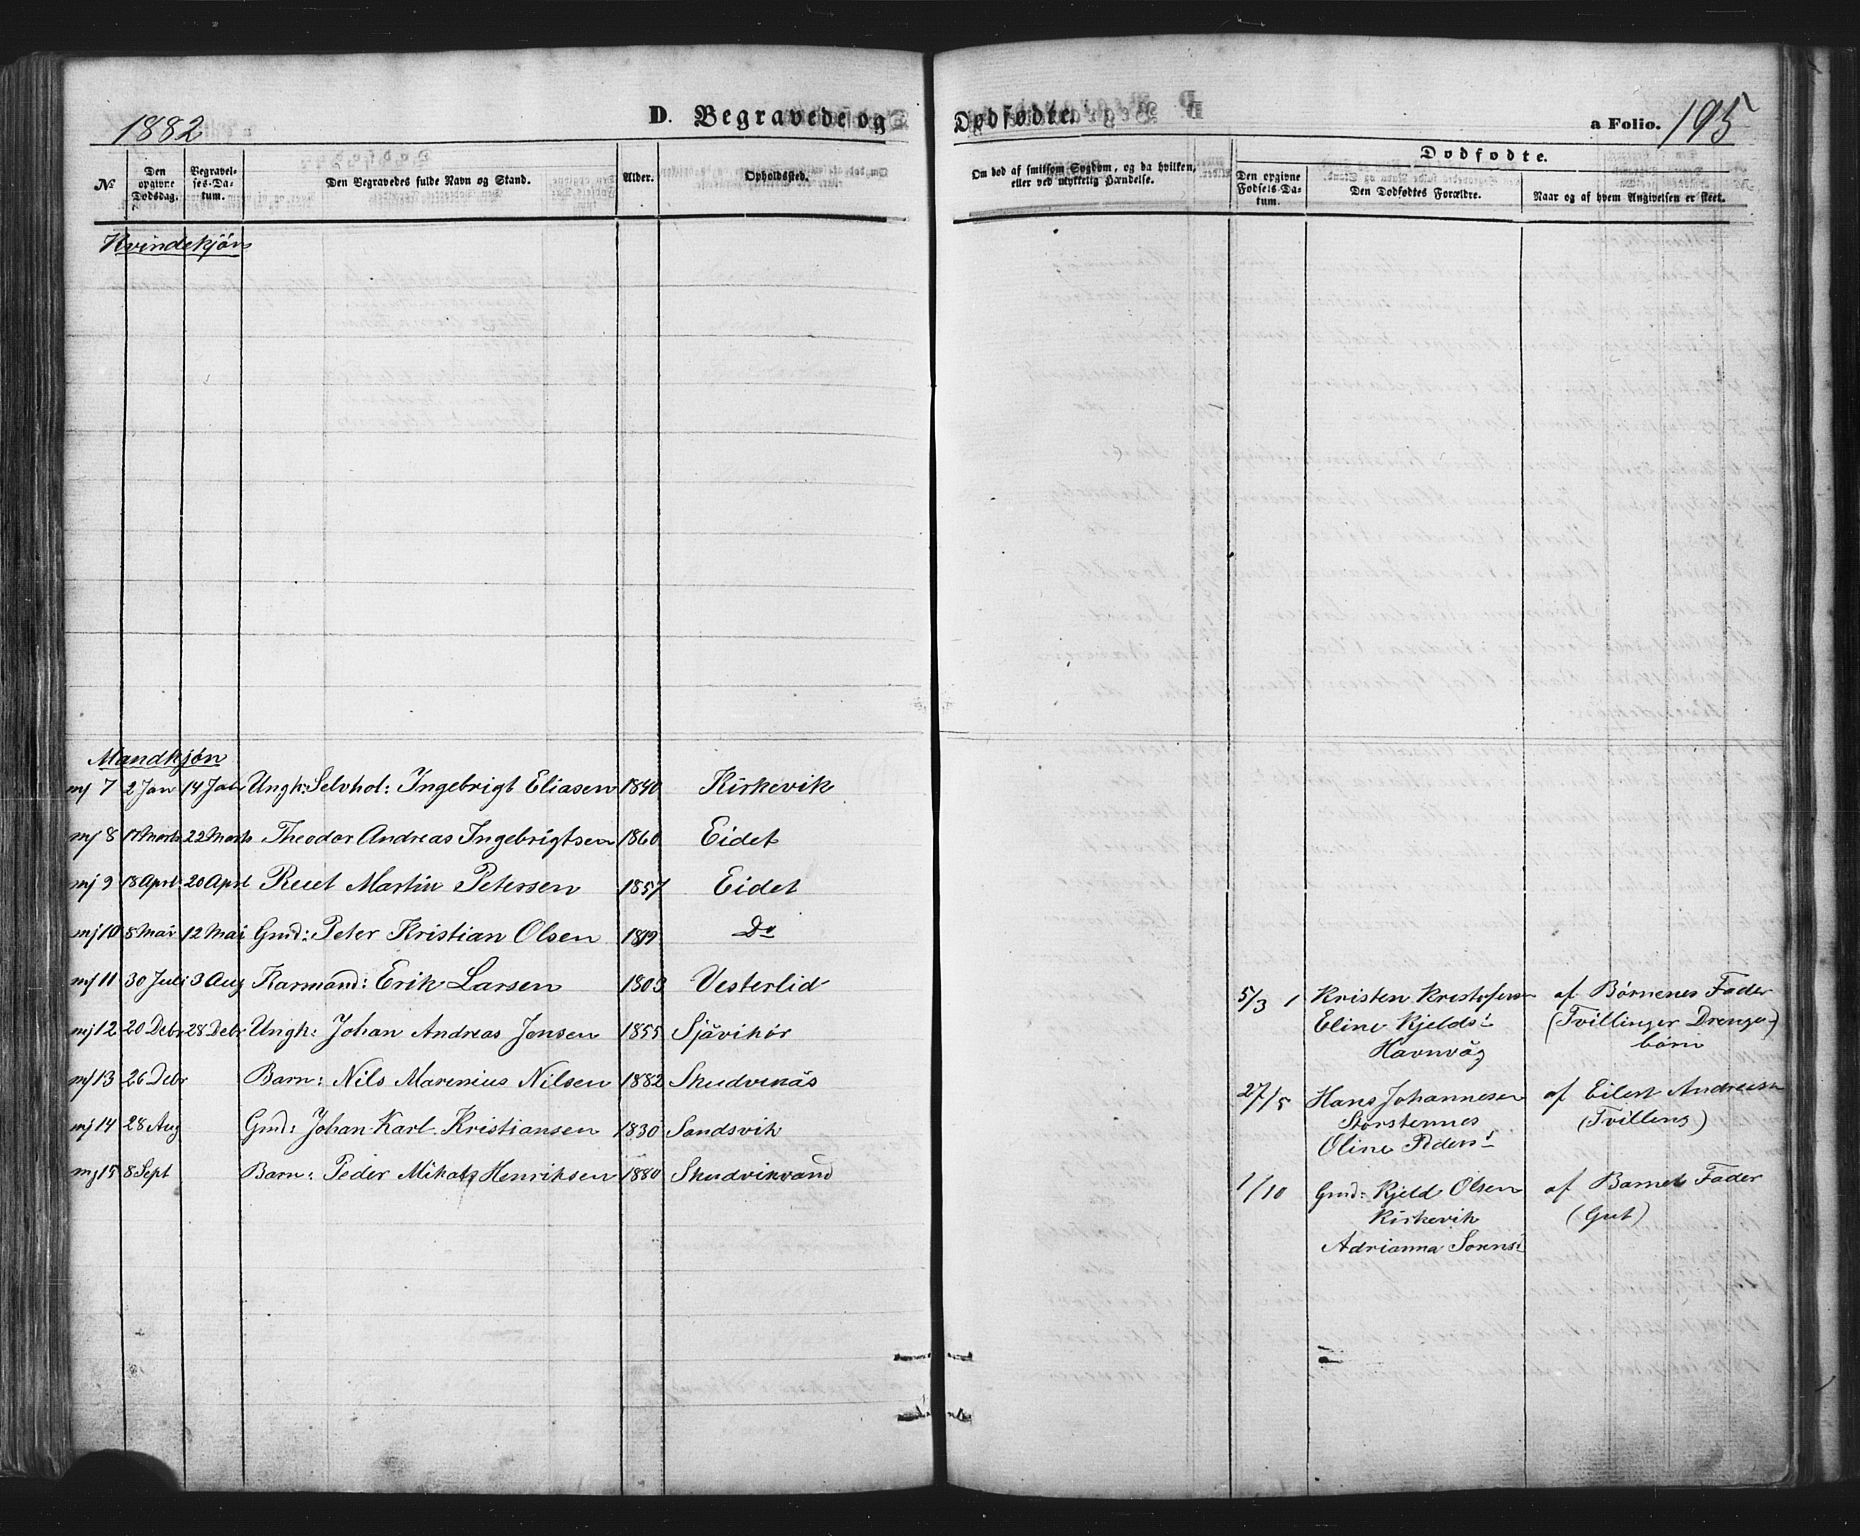 1882
D. Begravede og Dødfødte.
a Folio. 195
№
Den opgivne Dødsdag.
Begravelses-Datum.
Den Begravedes fulde Navn og Stand.
Alder.
Opholdssted.
Om død af smitsom Sygdom, og da hvilken, eller ved ulykkelig Hændelse.
Dødfødte.
Den opgivne Fødsels-Datum.
Den Dødfødtes Forældre.
Naar og af hvem Angivelsen er skeet.
Kvindekjøn
Mandkjøn
mj 7 2 Jan 14 Jan Ungk: Selvhol: Ingebrigt Eliasen 1840 Kirkevik
mj 8 17 Marts 22 Marts Theodor Andreas Ingebrigtsen 1860 Eidet
mj 9 18 Apri 20 Aprl Ruet Martin Petersen 1857 Eidet
mj 10 8 Mai 12 Mai Gmd: Peter Kristian Olsen 1819 Do
mj 11 30 Juli 3 Aug Karmand: Erik Larsen 1803 Vesterlid
mj 12 20 Debr 28 Debr Ungk: Johan Andreas Jensen 1855 Sjåvikør
mj 13 26 Debr Barn: Nils Marenius Nilsen 1882 Skudvinäs
mj 14 28 Aug Gmd: Johan Karl Kristiansen 1830 Sandsvik
mj 15 8 Sept Barn: Peder Mikal Henriksen 1880 Skudvikvand
5/3 1 Kristen Kristofersen af Børnenes Fader
Eline Kjelds: (Tvillinger Drenge-)
Havnväg børn
27/5 Hans Johannesen af Eilert Andreasen
Storstennes (Tvilling)
Oline Peders:
1/10 Gmd: Kjeld Olsen af Barnets Fader
Kirkevik (Gut)
Adrianna Sorens: